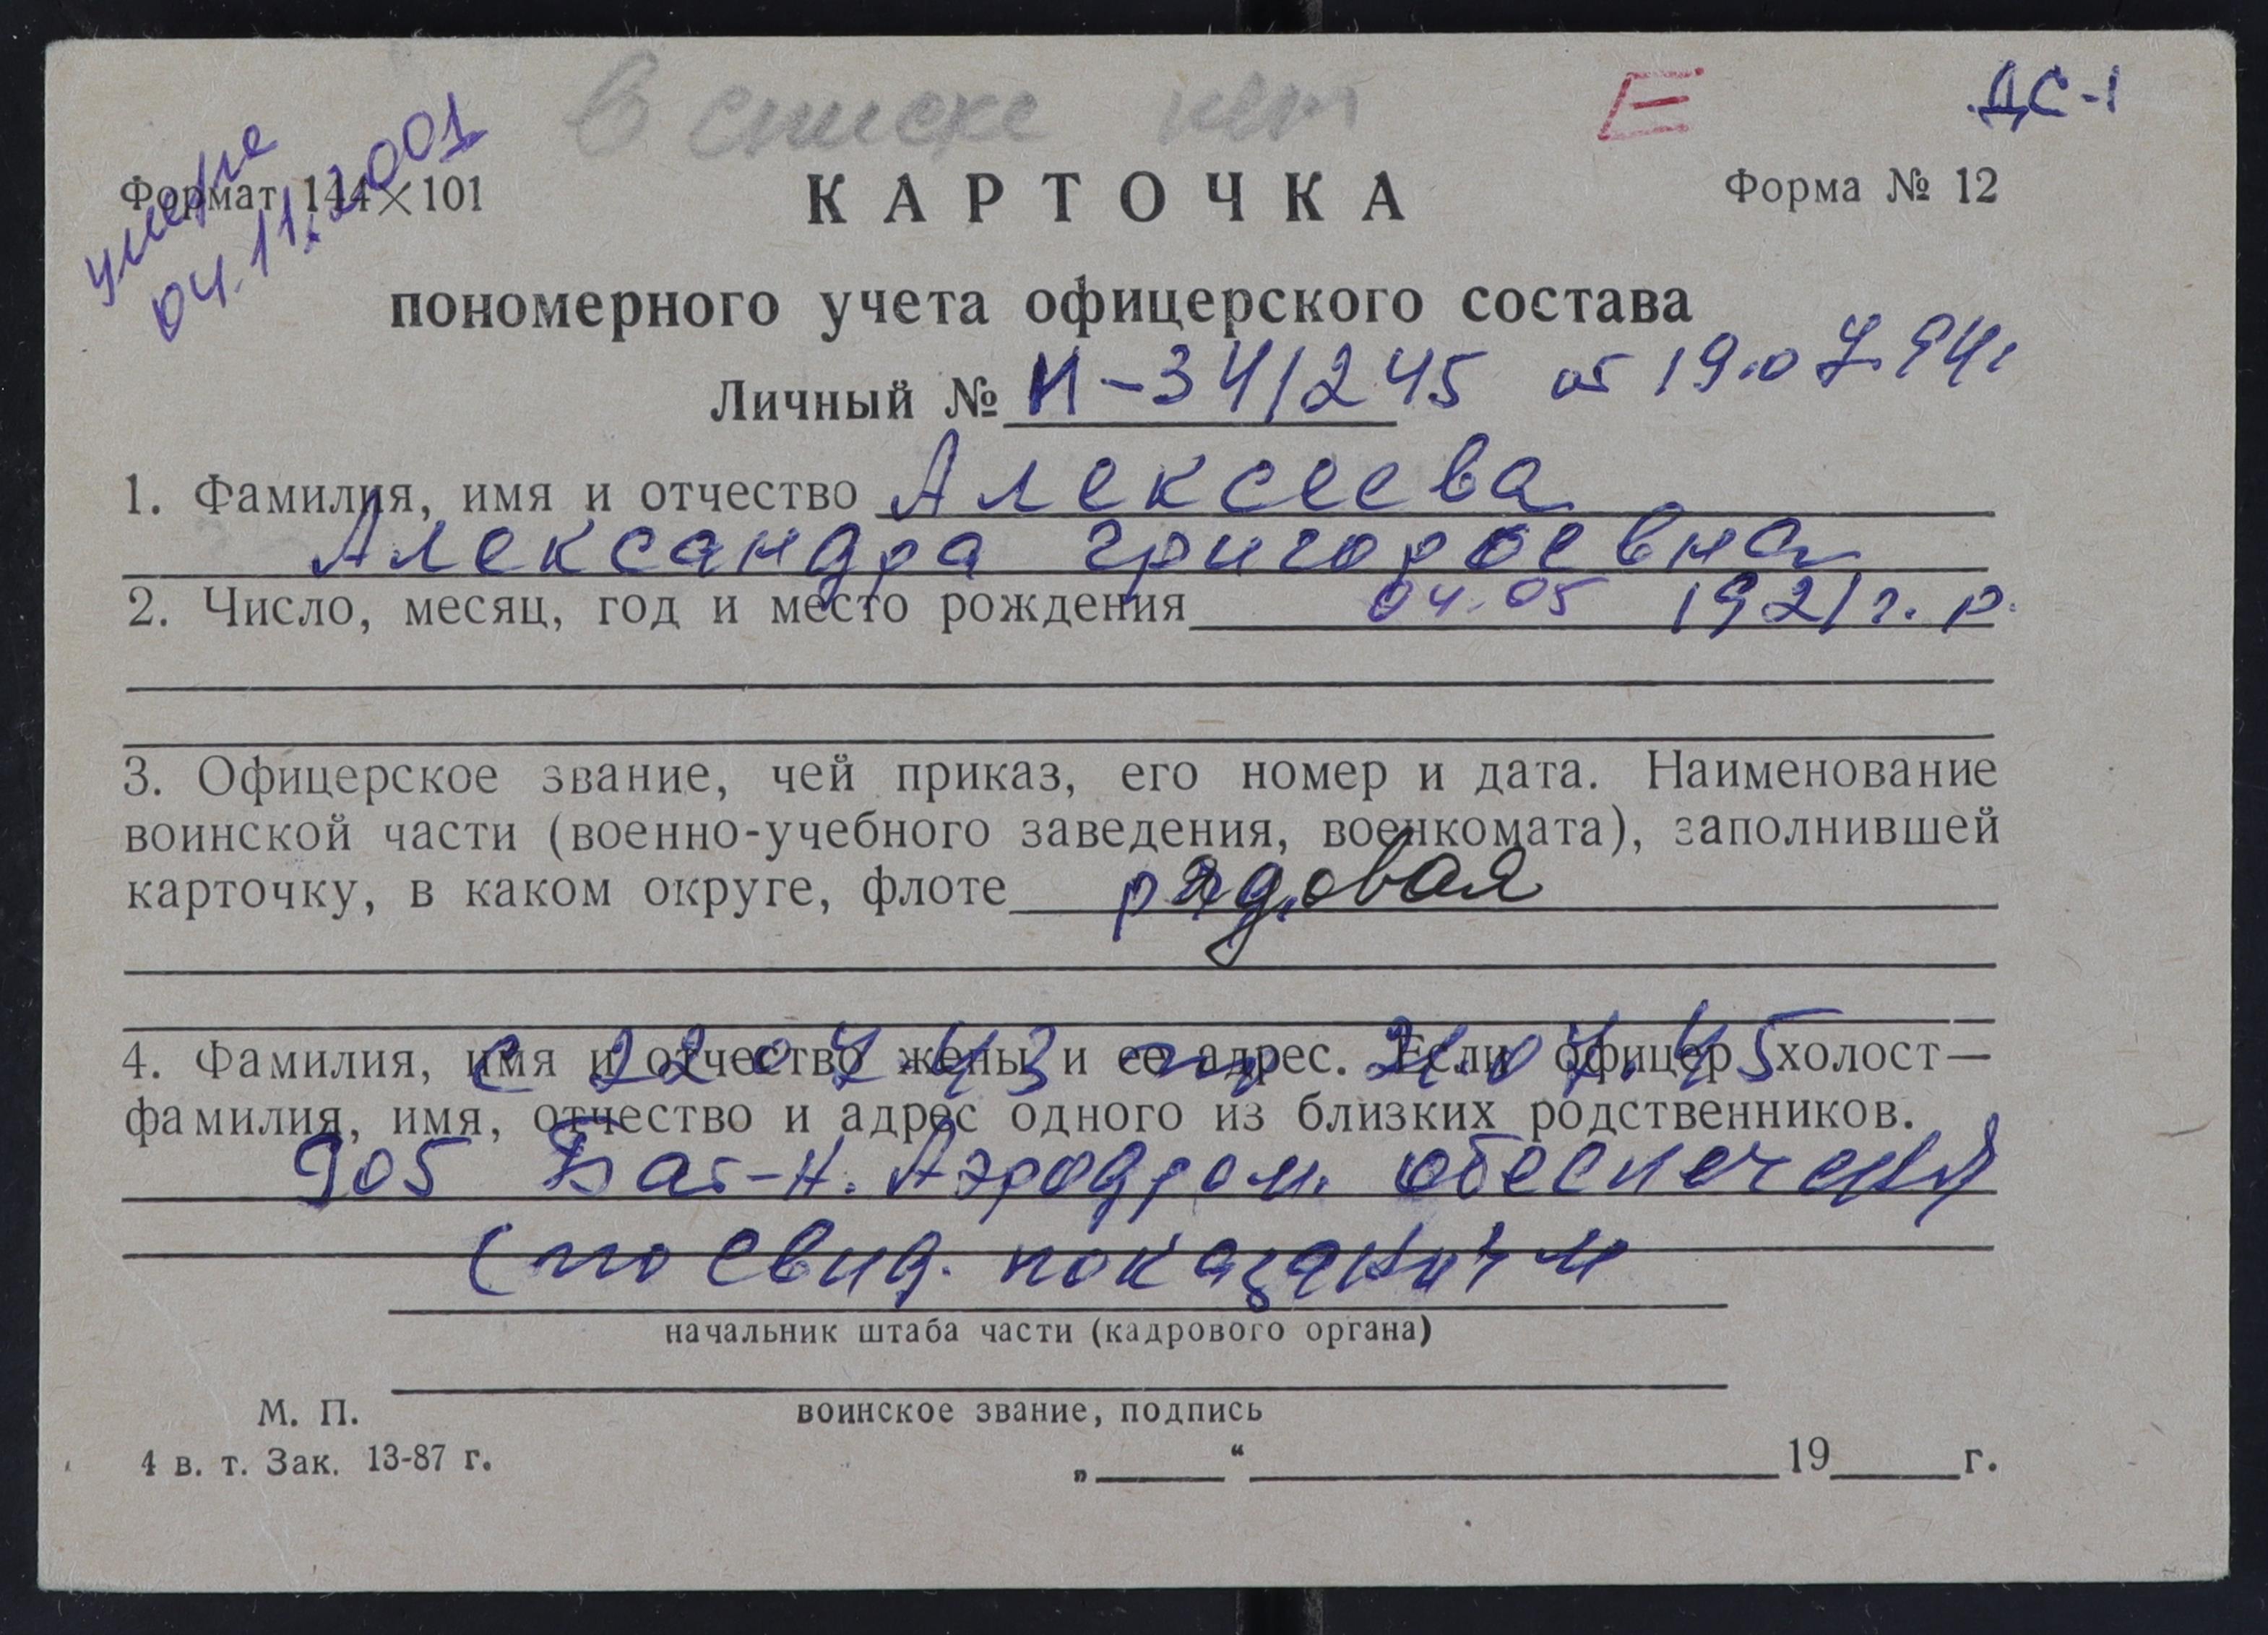 в списке нет
Е
ДС-1
умерла
04.11.2001
Формат 144×101
КАРТОЧКА
Форма № 12
пономерного учета офицерского состава
Личный № И-341245 от 19.07.94г
1. Фамилия, имя и отчество Алексеева
Александра григороевна
2. Число, месяц, год и место рождения 04.05 1921 г. р.
3. Офицерское звание, чей приказ, его номер и дата. Наименование
воинской части (военно-учебного заведения, военкомата), заполнившей
карточку, в каком округе, флоте рядовая
с 22.07.43 по 21.07.45
4. Фамилия, имя и отчество жены и ее адрес. Если офицер холост—
фамилия, имя, отчество и адрес одного из близких родственников.
905 Бат-н. Аэродром. обеспечения
(по свид. показаниям
начальник штаба части (кадрового органа)
М. П.
воинское звание, подпись
4 в. т. Зак. 13-87 г.
„ “ 19 г.